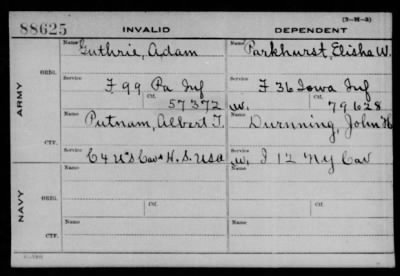 (3-H-3)
88625 INVALID DEPENDENT
Name Guthrie, Adam Name Parkhurst, Elisha W.
ARMY
ORIG.
Service F 99 Pa Inf Service F 36 Iowa Inf
Ctf. 57372 W. Ctf. 79628
Name Putnam, Albert T. Name Durnning, John
CTF.
Service C 4 U S Cav & H. S. USA Service W. I 12 NY Cav
NAVY
ORIG.
Name Name
Ctf. Ctf.
CTF.
Name Name